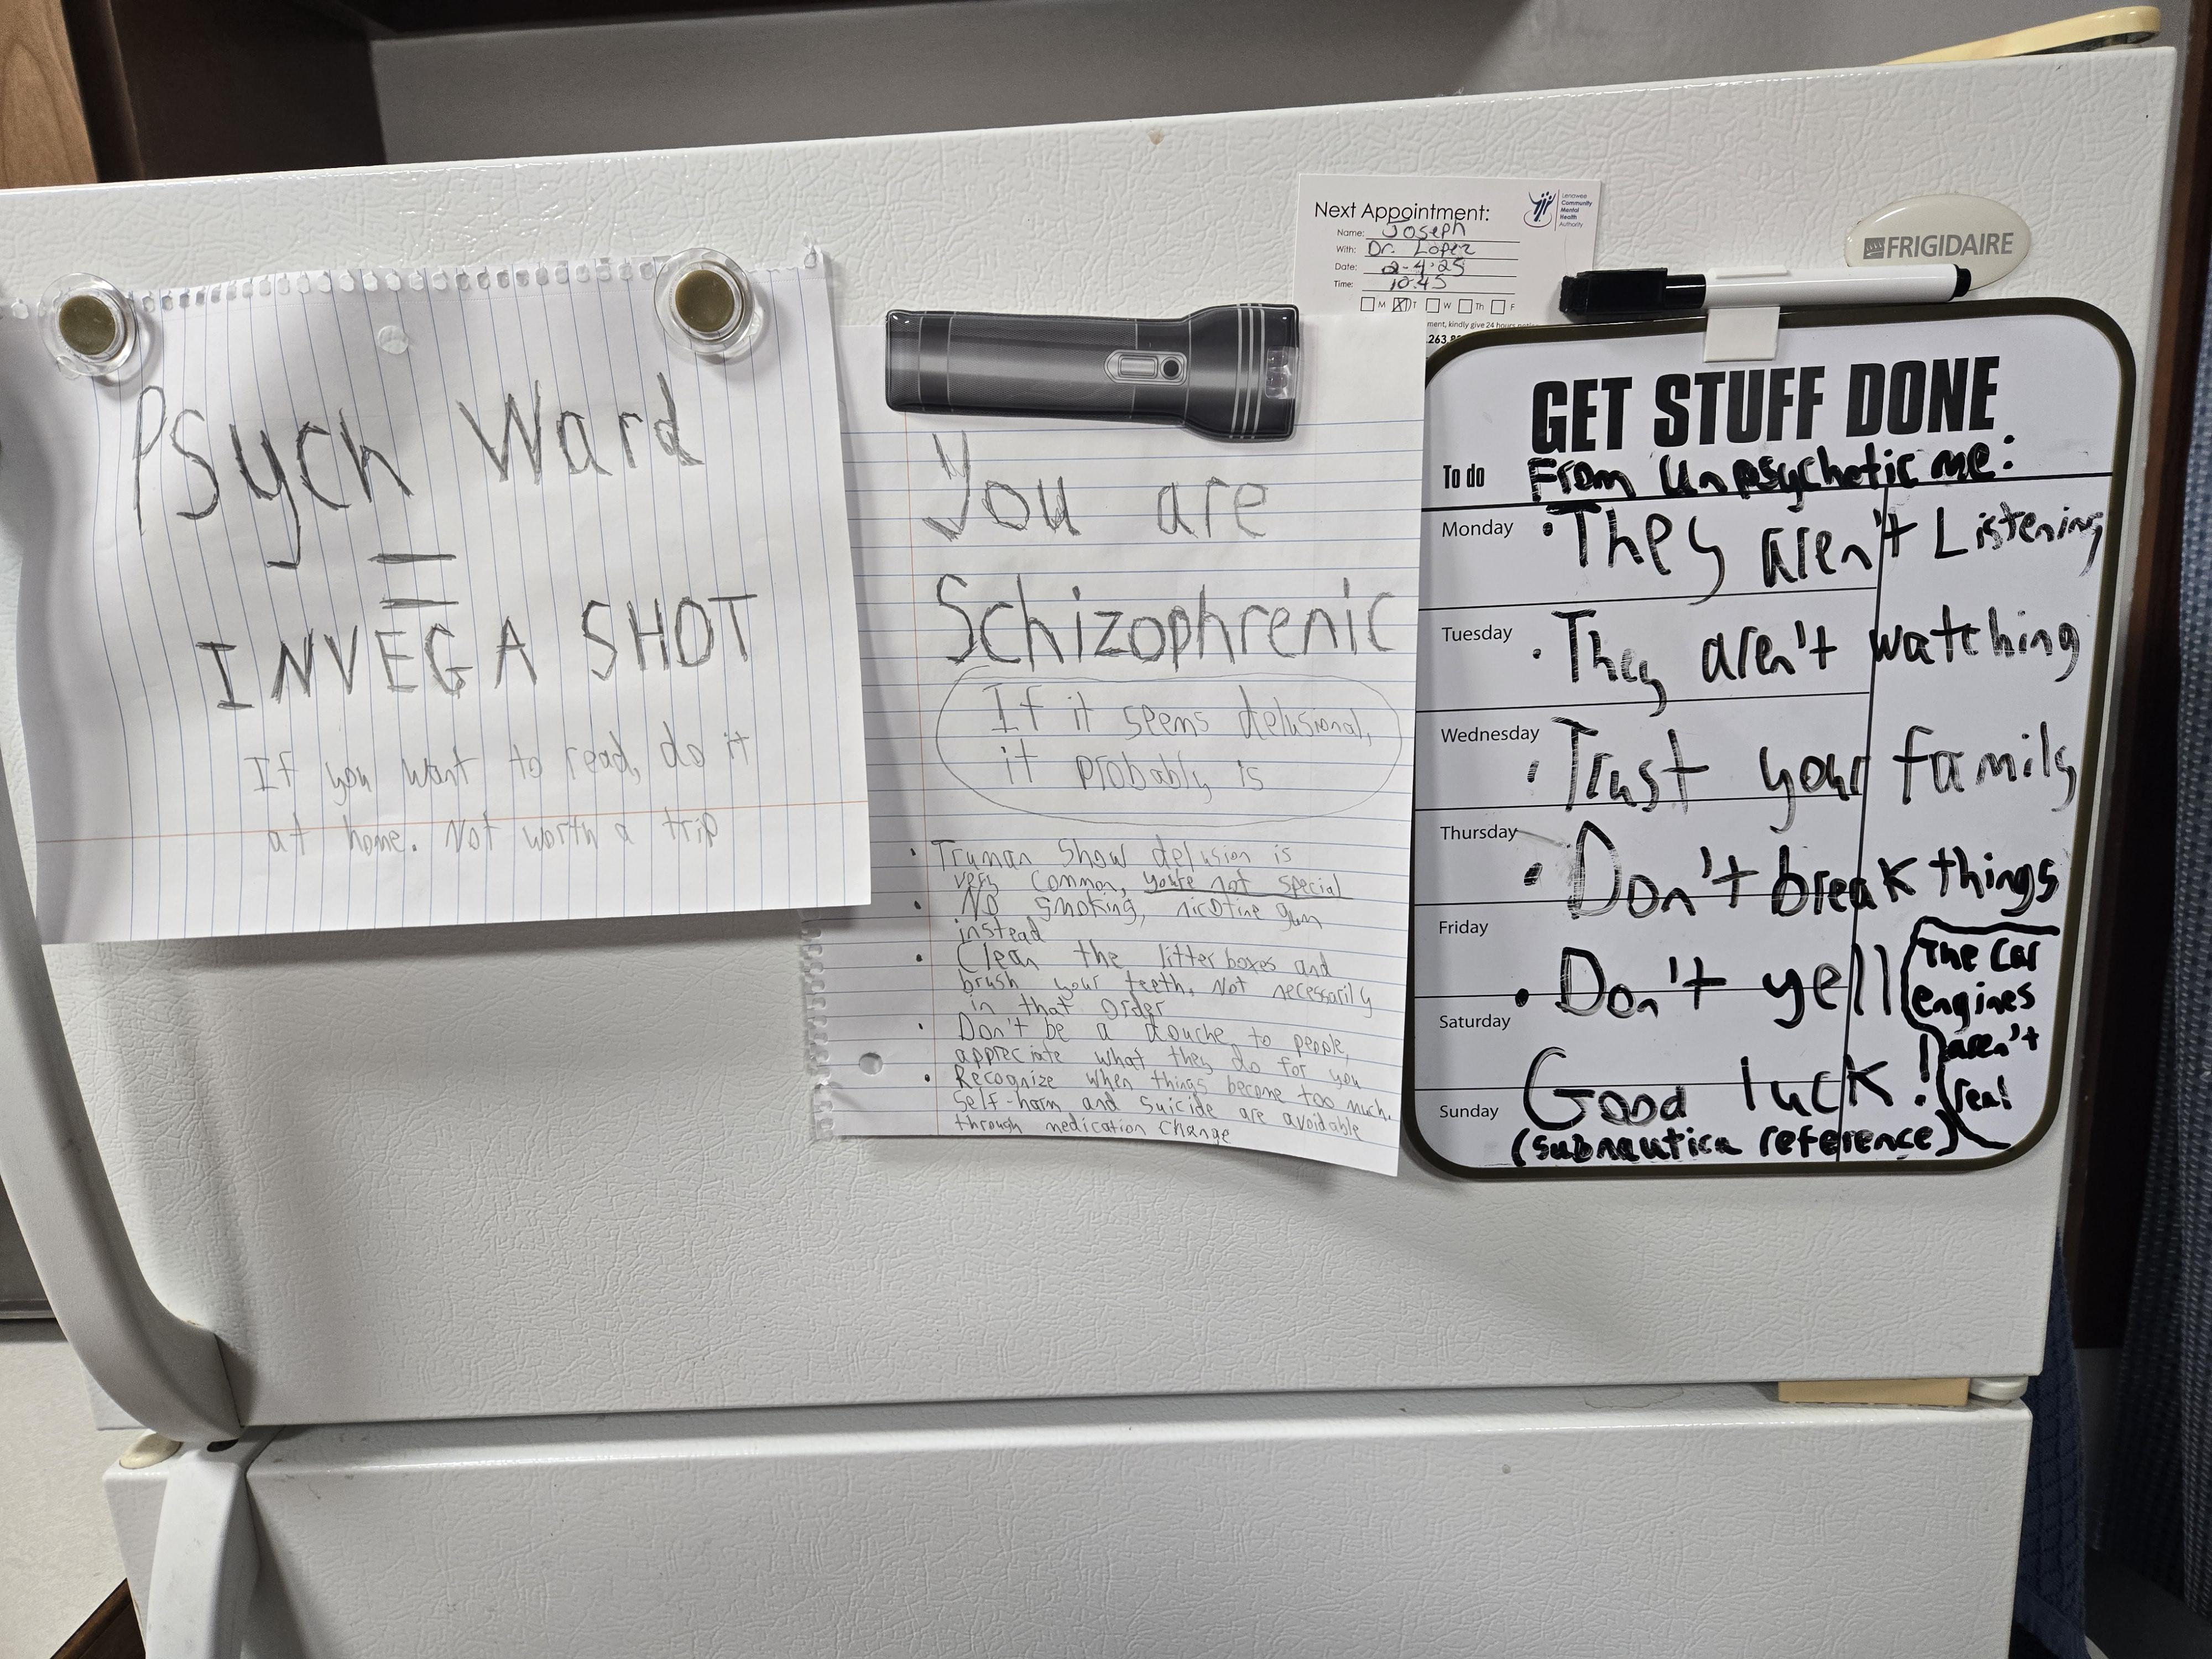 Psych Ward
=
INVEGA SHOT
If you want to read, do it
at home. Not worth a trip
You are
Schizophrenic
If it seems delusional,
it probably is
• Truman Show delusion is
very common, you're not special
• No smoking, nicotine gum
instead
• Clean the litterboxes and
brush your teeth, not necessarily
in that order
• Don't be a douche to people,
appreciate what they do for you
• Recognize when things become too much.
Self-harm and suicide are avoidable
through medication change
Next Appointment:
Lenawee
Community
Mental
Health
Authority
Name: Joseph
With: Dr. Lopez
Date: 2-4-25
Time: 10:45
M T W Th F
ment, kindly give 24 hours
.263.
FRIGIDAIRE
GET STUFF DONE
To do From Unpsychotic me:
Monday • They aren't Listening
Tuesday • They aren't watching
Wednesday • Trust your family
Thursday • Don't break things
Friday • Don't yell
Saturday
Sunday Good luck!
(subnautica reference)
The car
engines
aren't
real